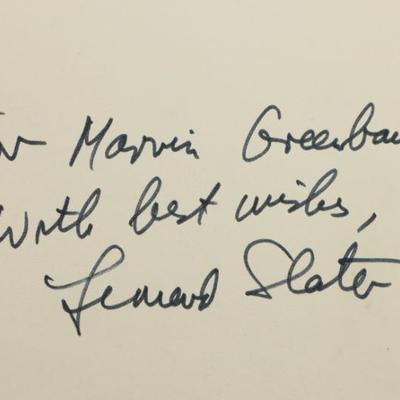 For Marvin Greenbau
With best wishes,
Leonard Slater